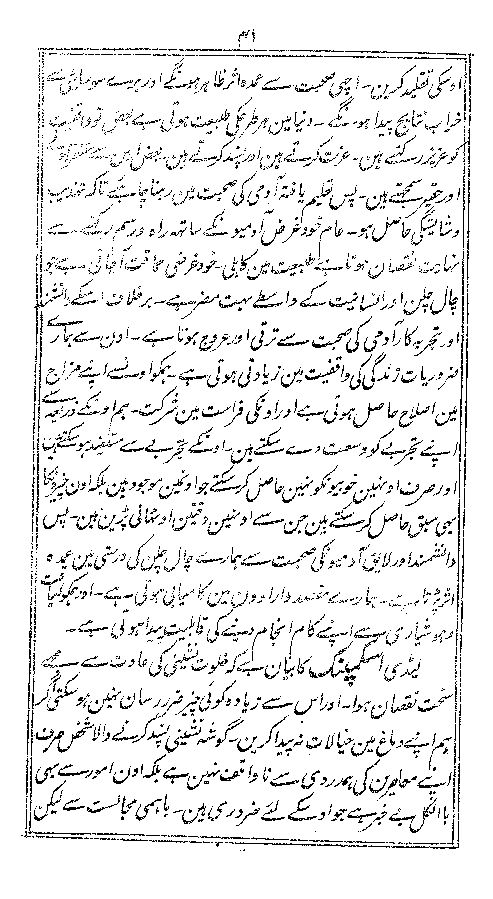 ۳۱
اوسکی تقلید کرین۔ اچھی صحبت سے عمدہ اثر ظاہر ہونگے اور برے سوسایٹی سے
خراب نتایج پیدا ہونگے۔ دنیا مین ہر طرحکی طبیعت ہوتی ہے بعض تو واقف
کو عزیز رکہتے ہین۔ عزت کرتے ہین اور پسند کرتے ہین۔ بعض اس سے
اور حقیر سمجہتے ہین۔ پس تعلیم یافتہ آدمی کی صحبت مین رہنا چاہئے تاکہ تہذیب
و شایستگی حاصل ہو۔ عام خود غرض آدمیونکے ساتہ راہ و رسم رکہنے سے
نہایت نقصان ہوتا ہے طبیعت مین کاہلی۔ خود غرضی حماقت آجاتی ہے جو
چال چلن اور انسانیت کے واسطے بہت مضر ہے۔ برخلاف اسکے دانشمند
اور تجربہ کار آدمی کی صحبت سے ترقی اور عروج ہوتا ہے۔ اون سے ہمارے
ضروریات زندگی کی واقفیت مین زیادتی ہوتی ہے۔ ہمکو اونسے اپنے مزاج
مین اصلاح حاصل ہوتی ہے اور اونکی فراست مین شرکت۔ ہم اونکے ذریعہ سے
اپنے تجربے کو وسعت دے سکتے ہین۔ اونکے تجربے سے مستفید ہوسکتے ہین
اور صرف اونہین خوبیونکو نہین حاصل کرسکتے جو اونمین موجود ہین بلکہ اون چیزونکا
بہی سبق حاصل کرسکتے ہین جن سے اونہین دقتین اوٹہانی پڑین ہین۔ پس
دانشمند اور لایق آدمیونکی صحبت سے ہمارے چال چلن کی درستی مین عمدہ
اثر پڑتا ہے۔ ہمارے ارادون مین کامیابی ہوتی ہے۔ اور ہمکو لیاقت
و ہوشیاری سے اپنے کام انجام دینے کی قابلیت پیدا ہوتی ہے۔
لیڈی کا بیان ہے کہ خلوت نشینی کی عادت سے مجہے
سخت نقصان ہوا۔ اور اس سے زیادہ کوئی چیز ضرر رسان نہین ہوسکتی اگر
ہم اپنے دماغ مین خیالات نہ پیدا کرین۔ گوشہ نشینی پسند کرنے والا شخص صرف
اپنے معاصرین کی ہمدردی سے ناواقف نہین ہے بلکہ اون امور سے بہی
بالکل بے خبر ہے جو اوسکے لئے ضروری ہین۔ باہمی مجالست سے لیکن